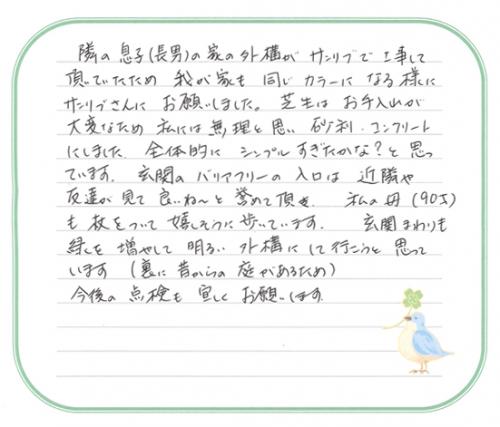 隣の息子(長男)の家の外構がサンリブで工事して
頂いていたため 我が家も同じカラーになる様に
サンリブさんに お願いしました。芝生は お手入れが
大変なため 私には無理と思い 砂利・コンクリート
にしました. 全体的に シンプルすぎたかな?と思っ
ています. 玄関の バリアフリーの入口は 近隣や
友達が見て 良いね〜と 誉めて頂き. 私の母(90才)
も杖をついて 嬉しそうに 歩いています. 玄関まわりも
緑を 増やして 明るい 外構に して行こうと 思って
います (裏に昔からの 庭があるため)
今後の点検も 宜しく お願いします.